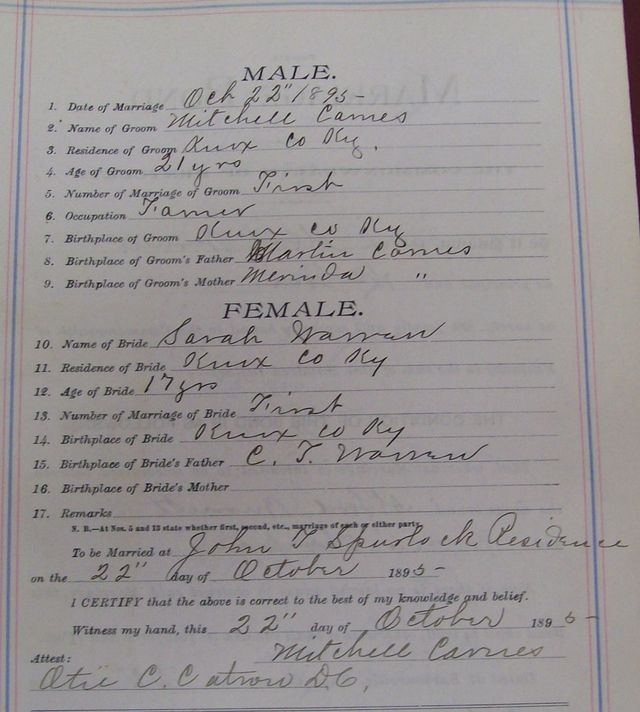 MALE.
1. Date of Marriage Oct 22" 1895-
2. Name of Groom Mitchell Carnes
3. Residence of Groom Knox Co Ky.
4. Age of Groom 21 yrs
5. Number of Marriage of Groom First
6. Occupation Famer
7. Birthplace of Groom Knox Co Ky
8. Birthplace of Groom's Father Martin Carnes
9. Birthplace of Groom's Mother Merinda "
FEMALE.
10. Name of Bride Sarah Warren
11. Residence of Bride Knox Co Ky
12. Age of Bride 17 yrs
13. Number of Marriage of Bride First
14. Birthplace of Bride Knox Co Ky
15. Birthplace of Bride's Father C. T. Warren
16. Birthplace of Bride's Mother
17. Remarks
N. B.—At Nos. 5 and 13 state whether first, second, etc., marriage of each or either party.
To be Married at John T Spurlock Residence
on the 22" day of October 1895-
I CERTIFY that the above is correct to the best of my knowledge and belief.
Witness my hand, this 22" day of October 1895-
Mitchell Carnes
Attest:
Otie C. Catron D.C.